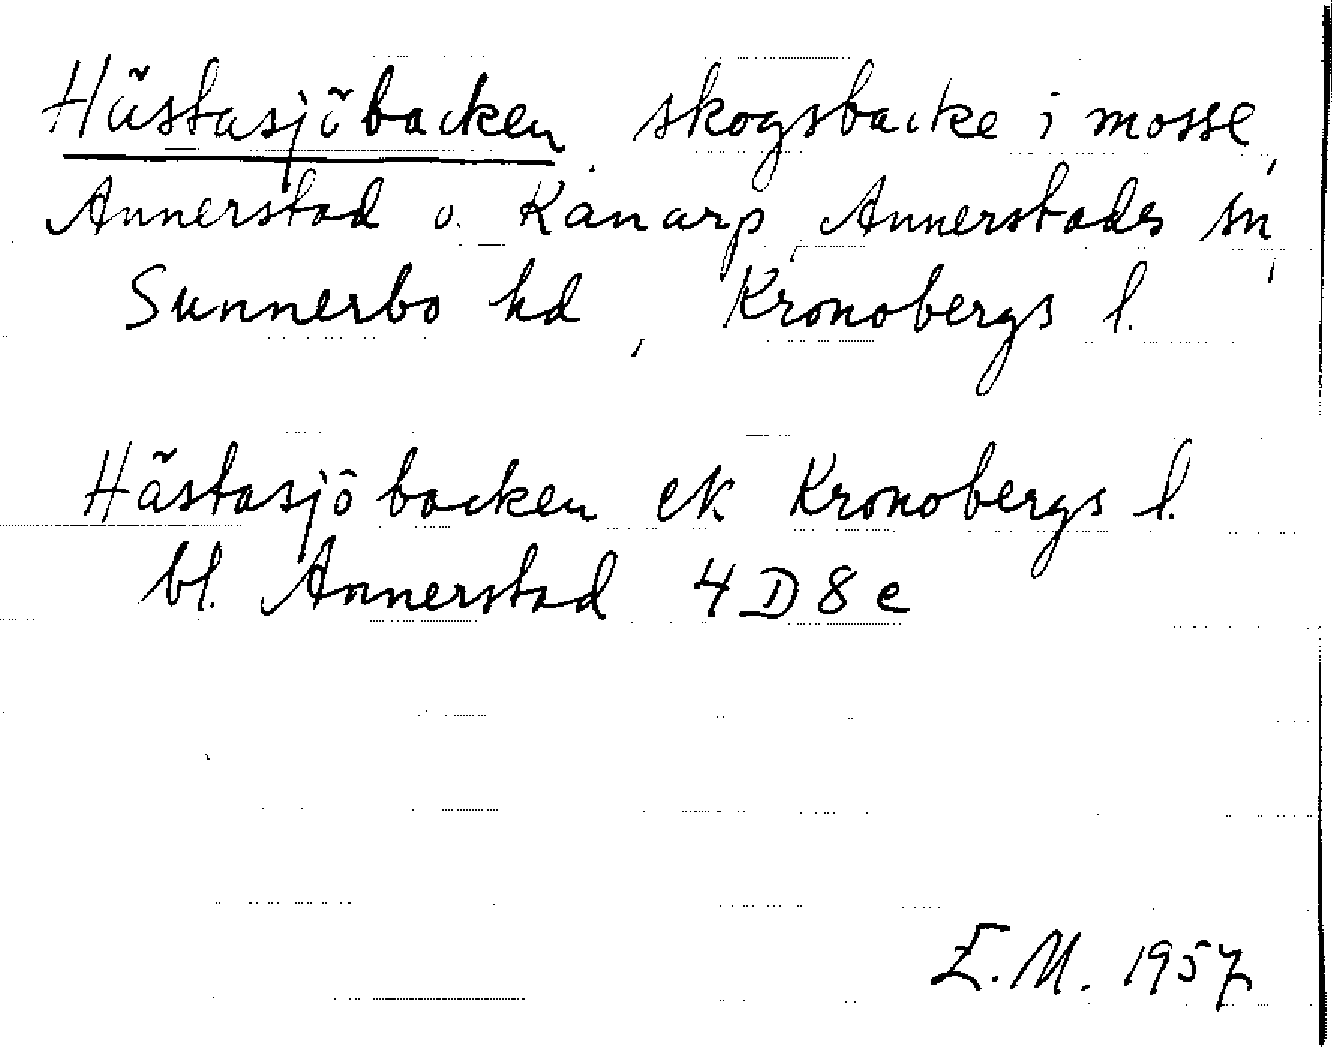 Hästasjöbacken, skogsbacke i mosse,
Annerstad o. Kånarp, Annerstads sn,
Sunnerbo hd, Kronobergs l.
Hästasjöbacken ek Kronobergs l.
bl. Annerstad 4D8e
E.M. 1957